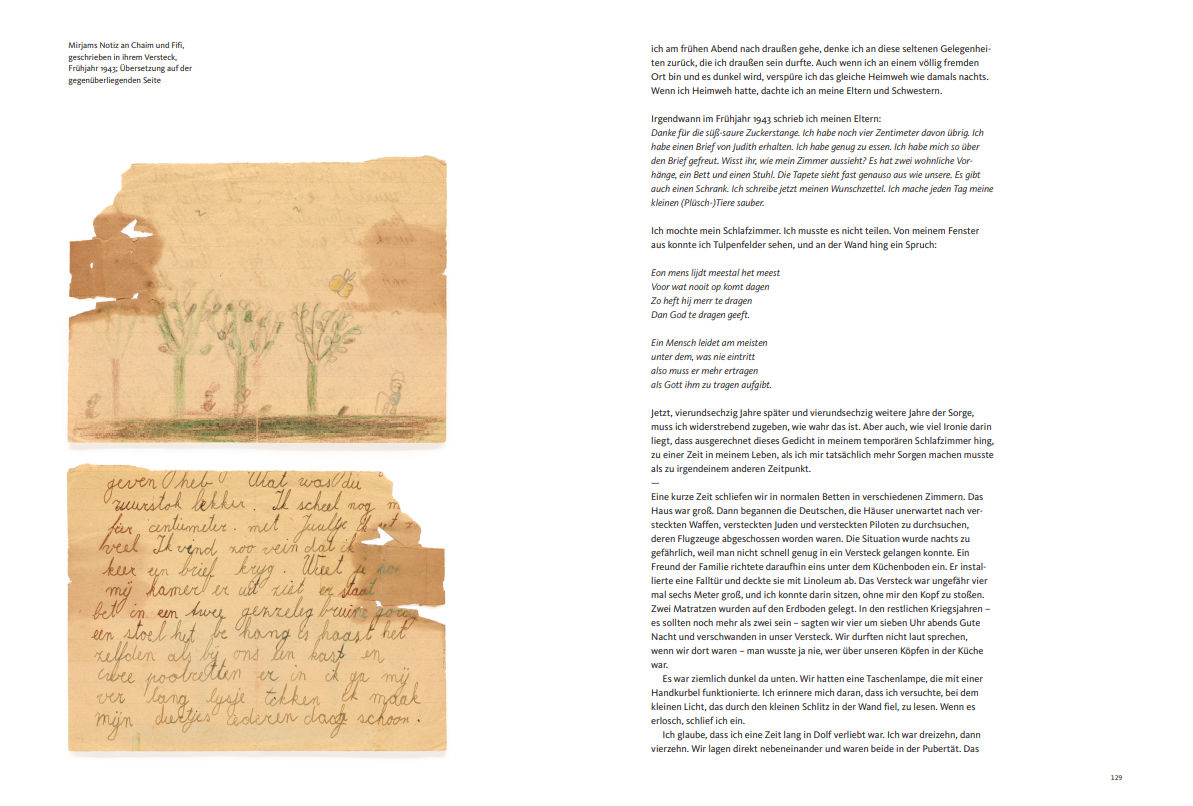 Mirjams Notiz an Chaim und Fifi,
geschrieben in ihrem Versteck,
Frühjahr 1943; Übersetzung auf der
gegenüberliegenden Seite
geven heb Wat was die
zuurstok lekker. Ik scheel nog
fier centiemeter. met
veel Ik vind zoo vein dat ik
keer een brief kryg. Weet je
mij kamer er uit ziet er staat
bet in een twee gezzelig bruine
een stoel het be hang is haast het
zelfden als bij ons een kast en
twee pootretten er in ik ga mij
ver lang lysje tekken Ik maak
mijn diertjes iederen dag schoon.
ich am frühen Abend nach draußen gehe, denke ich an diese seltenen Gelegenhei-
ten zurück, die ich draußen sein durfte. Auch wenn ich an einem völlig fremden
Ort bin und es dunkel wird, verspüre ich das gleiche Heimweh wie damals nachts.
Wenn ich Heimweh hatte, dachte ich an meine Eltern und Schwestern.
Irgendwann im Frühjahr 1943 schrieb ich meinen Eltern:
Danke für die süß-saure Zuckerstange. Ich habe noch vier Zentimeter davon übrig. Ich
habe einen Brief von Judith erhalten. Ich habe genug zu essen. Ich habe mich so über
den Brief gefreut. Wisst ihr, wie mein Zimmer aussieht? Es hat zwei wohnliche Vor-
hänge, ein Bett und einen Stuhl. Die Tapete sieht fast genauso aus wie unsere. Es gibt
auch einen Schrank. Ich schreibe jetzt meinen Wunschzettel. Ich mache jeden Tag meine
kleinen (Plüsch-)Tiere sauber.
Ich mochte mein Schlafzimmer. Ich musste es nicht teilen. Von meinem Fenster
aus konnte ich Tulpenfelder sehen, und an der Wand hing ein Spruch:
Eon mens lijdt meestal het meest
Voor wat nooit op komt dagen
Zo heft hij merr te dragen
Dan God te dragen geeft.
Ein Mensch leidet am meisten
unter dem, was nie eintritt
also muss er mehr ertragen
als Gott ihm zu tragen aufgibt.
Jetzt, vierundsechzig Jahre später und vierundsechzig weitere Jahre der Sorge,
muss ich widerstrebend zugeben, wie wahr das ist. Aber auch, wie viel Ironie darin
liegt, dass ausgerechnet dieses Gedicht in meinem temporären Schlafzimmer hing,
zu einer Zeit in meinem Leben, als ich mir tatsächlich mehr Sorgen machen musste
als zu irgendeinem anderen Zeitpunkt.
—
Eine kurze Zeit schliefen wir in normalen Betten in verschiedenen Zimmern. Das
Haus war groß. Dann begannen die Deutschen, die Häuser unerwartet nach ver-
steckten Waffen, versteckten Juden und versteckten Piloten zu durchsuchen,
deren Flugzeuge abgeschossen worden waren. Die Situation wurde nachts zu
gefährlich, weil man nicht schnell genug in ein Versteck gelangen konnte. Ein
Freund der Familie richtete daraufhin eins unter dem Küchenboden ein. Er instal-
lierte eine Falltür und deckte sie mit Linoleum ab. Das Versteck war ungefähr vier
mal sechs Meter groß, und ich konnte darin sitzen, ohne mir den Kopf zu stoßen.
Zwei Matratzen wurden auf den Erdboden gelegt. In den restlichen Kriegsjahren –
es sollten noch mehr als zwei sein – sagten wir vier um sieben Uhr abends Gute
Nacht und verschwanden in unser Versteck. Wir durften nicht laut sprechen,
wenn wir dort waren – man wusste ja nie, wer über unseren Köpfen in der Küche
war.
Es war ziemlich dunkel da unten. Wir hatten eine Taschenlampe, die mit einer
Handkurbel funktionierte. Ich erinnere mich daran, dass ich versuchte, bei dem
kleinen Licht, das durch den kleinen Schlitz in der Wand fiel, zu lesen. Wenn es
erlosch, schlief ich ein.
Ich glaube, dass ich eine Zeit lang in Dolf verliebt war. Ich war dreizehn, dann
vierzehn. Wir lagen direkt nebeneinander und waren beide in der Pubertät. Das
129